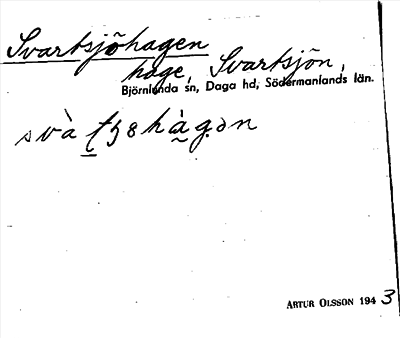 Svartsjöhagen
hage, Svartsjön,
Björnlunda sn, Daga hd, Södermanlands län.
svàʈʂ8hàgən
ARTUR OLSSON 1943